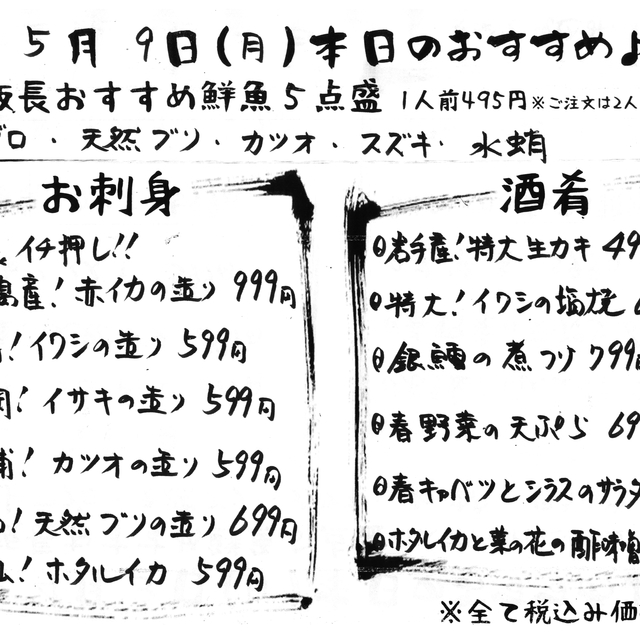 5月9日(月)本日のおすすめ
長おすすめ鮮魚5点盛 1人前495円※ご注文は2人
ブロ・天然ブリ・カツオ・スズキ・水蛸
お刺身
イチ押し!!
産!赤イカの造り 999円
!イワシの造り 599円
!イサキの造り 599円
!カツオの造り 599円
!天然ブリの造り 699円
!ホタルイカ 599円
酒肴
岩手産!特大生カキ 49
特大!イワシの塩焼
銀鱈の煮つけ 799
春野菜の天ぷら 69
春キャベツとシラスのサラダ
ホタルイカと菜の花の酢味噌
※全て税込み価